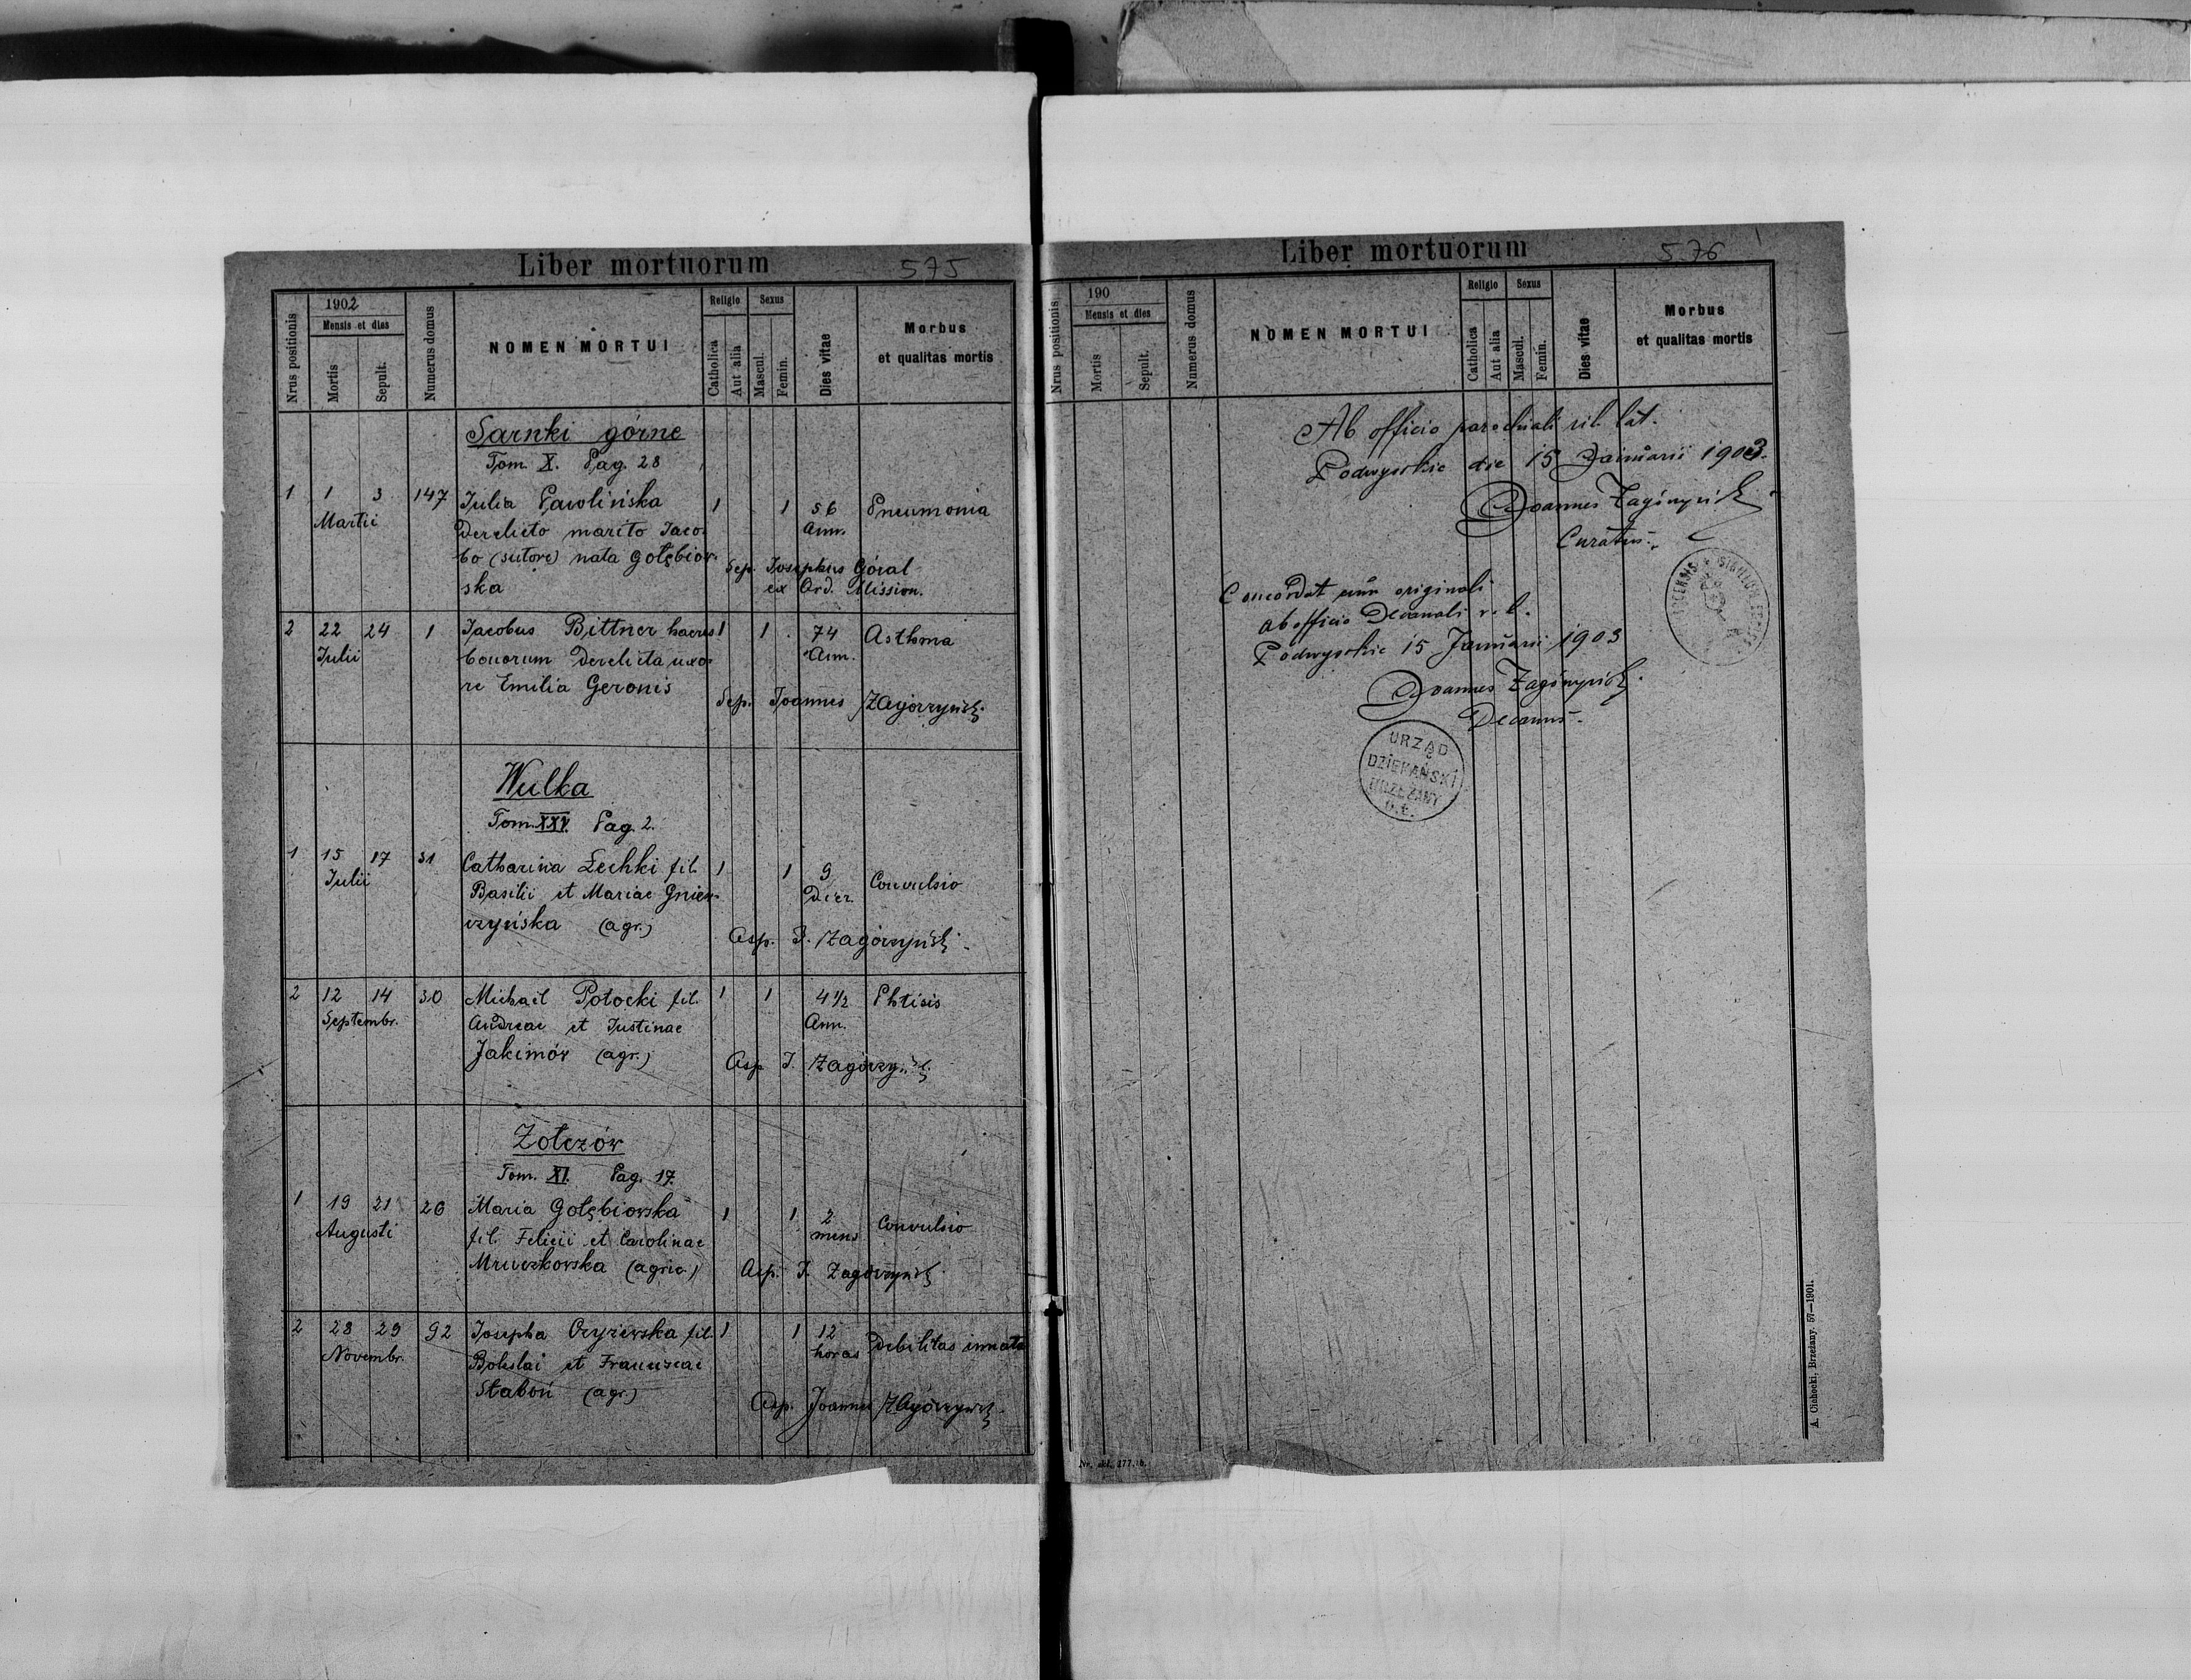 Liber mortuorum 575
Nrus positionis
1902
Mensis et dies
Mortis
Sepult.
Numerus domus
NOMEN MORTUI
Religio
Catholica
Aut alia
Sexus
Mascul.
Femin.
Dies vitae
Morbus
et qualitas mortis
Sarnki górne
Tom. X. Pag. 28
1 1 3 147 Julia Pawolińska 1 1 56 Pneumonia
Martii derelicto marito Jaco- Ann.
bo (sutore) nata Gołębiow- Sep. Josephus Góral
ska ex Ord. Mission.
2 22 24 1 Jacobus Bittner haeres 1 1 74 Asthma
Julii bonorum derelicta uxo- Ann.
re Emilia Geronis Sep. Joannes Zagórzyński
Wulka
Tom. XXV. Pag. 2.
1 15 17 31 Catharina Lechki fil. 1 1 9 Convulsio
Julii Basilii et Mariae Gniew- Dier.
czyńska (agr.) Asp. J. Zagórzyński
2 12 14 30 Michaël Potocki fil. 1 1 4 1/2 Phtisis
Septembr. Andreae et Justinae Ann.
Jakimów (agr.) Asp. J. Zagórzyński
Żołczów
Tom. XI. Pag. 17.
1 19 21 26 Maria Gołębiowska 1 1 2 Convulsio
Augusti fil. Felicii et Carolinae mens
Mruczkowska (agric.) Asp. J. Zagórzyński
2 28 29 92 Josepha fil. 1 1 12 Debilitas innata
Novembr. Boleslai et Franciscae horas
Staboń (agr.) Asp. Joannes Zagórzyński
Liber mortuorum 576
Nrus positionis
190
Mensis et dies
Mortis
Sepult.
Numerus domus
NOMEN MORTUI
Religio
Catholica
Aut alia
Sexus
Mascul.
Femin.
Dies vitae
Morbus
et qualitas mortis
Ab officio parochiali rit. lat.
Podwysokie die 15 Januarii 1903.
Joannes Zagórzyński
Curatus.
Concordat cum originali
ab officio Decanali r. l.
Podwysokie 15 Januarii 1903
Joannes Zagórzyński
Decanus.
URZĄD
DZIEKAŃSKI
BRZEŻANY
o. ł.
A. Cichocki, Brzeżany. 57—1901.